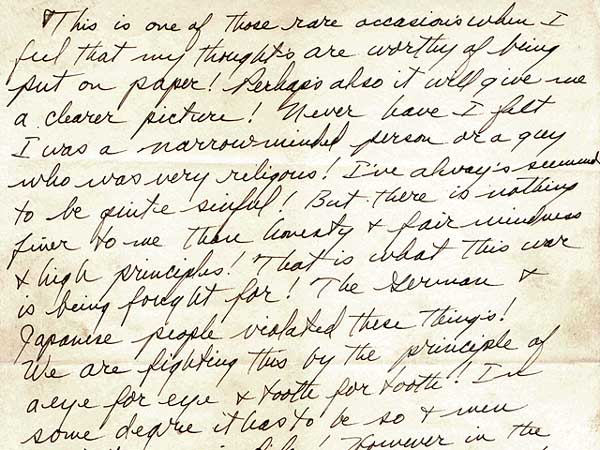 This is one of those rare occasions when I
feel that my thought's are worthy of being
put on paper! Perhaps also it will give me
a clearer picture! Never have I felt
I was a narrowminded person or a guy
who was very religous! I've alway's seemed
to be quite sinful! But there is nothing
finer to me than honesty & fair mindness
& high principles! That is what this war
is being fought for! The German &
Japanese people violated these thing's!
We are fighting this by the principle of
a eye for eye & tooth for tooth! In
some degree it has to be so & men
However in the